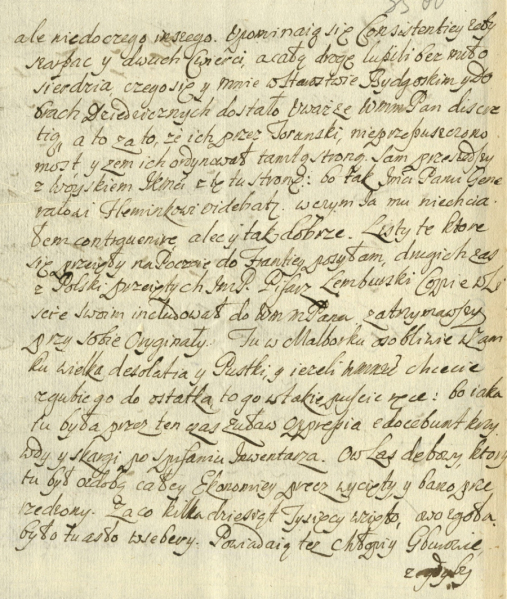 ale niedoczego inszego. Upominaią się Consistentiey żeby
szarpac y dwuch Cwierci, a cały drogę łupili bez miło
sierdzia czego się y mnie w Starostwie Bydgoskim y do
brach Dziedzicznych dostało Uważ że WmmPan discre
tią, a to za to, że ich przez Toruński, nieprzepuszczono
most y żem ich ordynował tamtą stroną. Sam przeszedszy
z Woyskiem z tę tu stronę: bo tak Imci Panu Gene
rałowi Fleminkowi videbat. w czym Ja mu niechcia
łem contravenire, ale y tak dobrze. Listy te ktore
się przeięły na Poczcie do Franciey posyłam, drugich zas
z Polski przeiętych ImP. Pisarz Lemburski Coppie w Li
scie swoim includował do Wm mPana zatrzymawszy
przy sobie Originały. Tu w Malborku osobliwie w Zam
ku wielka desolatia y Pustki, y ieżeli chcecie
zgubić go do ostatka to go w takie puście ręce: bo iaka
tu była przez ten czas Żuław oppressia edocebunt krzy
wdy y skargi po spisaniu Inwentarza. Ow Las dębowy, ktory
tu był ozdobą całey Ekonomiey precz wycięty y bano prze
rzedzony. Za co kilkadziesiąt Tysięcy wzięto, a
było tu asło wsebery. Powiadaią też chłopi y Gburowie,
żegdyby